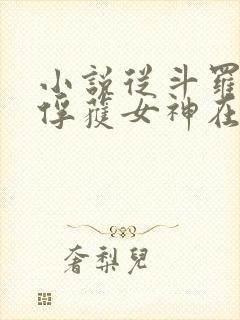 小說從斗羅
俘獲女神在
奢梨兒